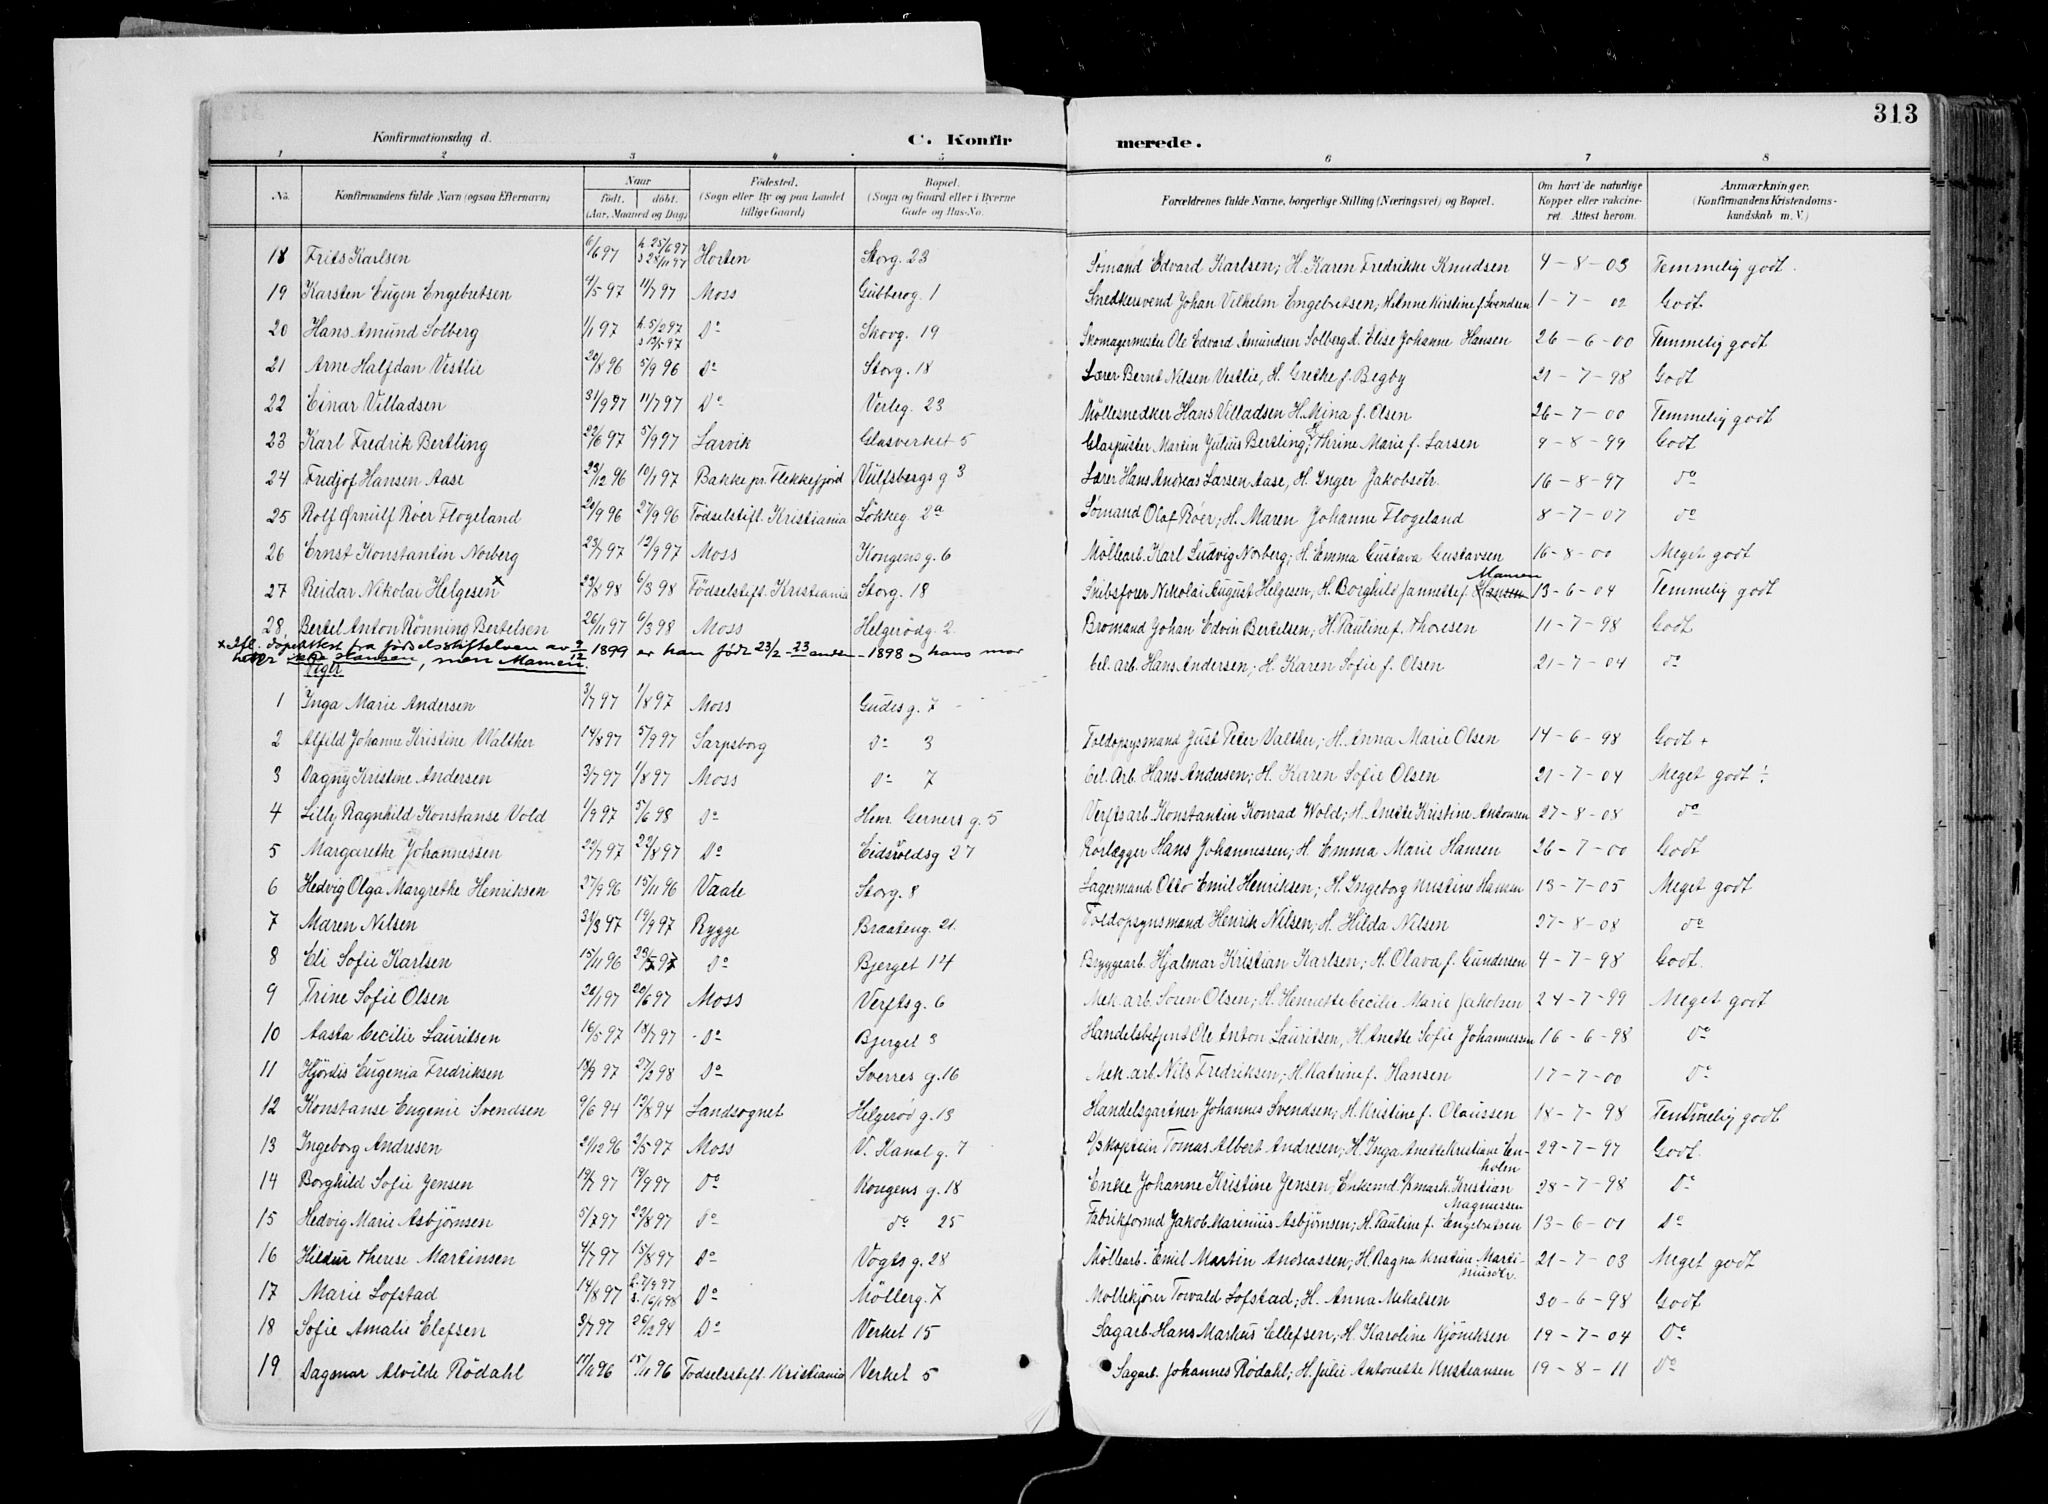 313
Konfirmationsdag d. C. Konfir merede.
1 2 3 4 5 6 7 8
No. Konfirmandens fulde Navn (ogsaa Efternavn) Naar født. døbt. (Aar, Maaned og Dag) Fødested. (Sogn eller By og paa Landet tillige Gaard) Bopæl. (Sogn og Gaard eller i Byerne Gade og Hus-No. Forældrenes fulde Navne, borgerlige Stilling (Næringsvei) og Bopæl. Om havt de naturlige Kopper eller vakcineret. Attest herom. Anmærkninger. (Konfirmandens Kristendomskundskab m. V.)
18 Frits Karlsen 6/6 97 h. 25/6 97 s 28/11 97 Horten Storg. 23 Sömand Edvard Karlsen; H. Karen Fredrikke Knudsen 4-8-03 Temmelig godt.
19 Karsten Eugen Engebretsen 4/5 97 11/7 97 Moss Gubberog. 1 Snedkersvend Johan Vilhelm Engebretsen; H. Anne Kirstine f. Svendsen 1-7-02 Godt
20 Hans Amund Solberg 1/1 97 h. 5/2 97 s 13/5 97 Do Skovg. 19 Skomagermester Ole Edvard Amundsen Solberg H. Elise Johanne Hansen 26-6-00 Temmelig godt
21 Arne Halfdan Vestlie 20/8 96 5/9 96 Do Storg. 18 Lærer Bernt Nilsen Vestlie, H. Grethe f. Begby 21-7-98 Godt
22 Einar Villadsen 11/7 97 Do Verleg. 23 Möllesnedker Hans Villadsen H. Mina f. Olsen 26-7-00 Temmelig godt
23 Karl Fredrik Bertling 22/6 97 5/9 97 Larvik Glasverket 5 Glaspuster Martin Julius Bertling; Thrine Marie f. Larsen 9-8-99 Godt
24 Fredjof Hansen Aase 23/12 96 10/1 97 Bakke pr. Flekkefjord Vulfsbergs g 3 Lærer Hans Andreas Larsen Aase, H. Inger Jakobsdtr. 16-8-97 do
25 Rolf Ørnulf Röer Flogeland 20/9 96 27/9 96 Födselstift. Kristiania Lökkeg. 2a Sømand Olaf Röer; H. Maren Johanne Flogeland 8-7-07 do
26 Ernst Konstantin Norberg 23/7 97 12/9 97 Moss Kongens g. 6 Möllearb. Karl Ludvig Norberg; H. Emma Gustava Gustavsen 16-8-00 Meget godt
27 Reidar Nikolai Helgesen x 23/8 98 6/3 98 Födselstift. Kristiania Storg. 18 Skibsförer Nikolai August Helgesen, H. Borghild Jannette f. Hansen Mamen 13-6-04 Temmelig godt
28 Bertel Anton Rönning Bertelsen 26/11 97 6/3 98 Moss Helgerödg. 2. Bromand Johan Edvin Bertelsen; H. Pauline f. Thoresen 11-7-98 Godt
x Ifl. dåpsattest fra fødselsstiftelsen av 2/12 1899 er han født 23/2 - 23 anden - 1898 og hans mor
heter ikke Hansen, men Mamen.
Piger
1 Inga Marie Andersen 3/7 97 1/8 97 Moss Gudes g. 7 Cel. arb. Hans Andersen; H. Karen Sofie f. Olsen 21-7-04 do
2 Alfild Johanne Kristine Walther 14/8 97 5/9 97 Sarpsborg Do 3 Toldopsynsmand Just Peter Valther; H. Anna Marie Olsen 14-6-98 Godt +
3 Dagny Kristine Andersen 3/7 97 1/8 97 Moss Do 7 Cel. Arb. Hans Andersen; H. Karen Sofie Olsen 21-7-04 Meget godt ÷
4 Lilly Ragnhild Konstanse Vold 1/9 97 5/6 98 Do Henr. Gerners g. 5 Verftsarb. Konstantin Konrad Wold; H. Anette Kristine Antonsen 27-8-08 do
5 Margarethe Johannessen 22/7 97 22/8 97 Do Eidsvoldsg 27 Rörlægger Hans Johannessen; H. Emma Marie Hansen 26-7-00 Godt
6 Hedvig Olga Margrethe Henriksen 27/9 96 15/11 96 Vaale Storg. 8 Lagermand Otto Emil Henriksen; H. Ingeborg Kristine Hansen 13-7-05 Meget godt
7 Maren Nilsen 31/3 97 19/9 97 Rygge Braateng. 21. Toldopsynsmand Henrik Nilsen; H. Hilda Nilsen 27-8-08 do
8 Eli Sofie Karlsen 15/11 96 23/5 97 Do Bjerget 14 Bryggearb. Hjalmar Kristian Karlsen; H. Olava f. Gundersen 4-7-98 Godt.
9 Trine Sofie Olsen 20/1 97 20/6 97 Moss Verfts g. 6 Mek. arb. Soren Olsen; H. Henriette Cecilie Marie Jakobsen 24-7-99 Meget godt
10 Aasta Cecilie Lauritsen 16/5 97 18/7 97 Do Bjerget 3 Handelsbetjent Ole Anton Lauritsen, H. Anette Sofie Johannessen 16-6-98 Do
11 Hjördis Eugenia Fredriksen 97 27/2 98 Do Sverres g. 16 Mek. arb. Nils Fredriksen; H. Katrine f. Hansen 17-7-00 Do
12 Konstanse Eugenie Svendsen 9/6 94 12/8 94 Landsognet Helgerød g. 13 Handelsgartner Johannes Svendsen; H. Kristine f. Olaussen 18-7-98 Temmelig godt
13 Ingeborg Andresen 21/12 96 2/5 97 Moss V. Kanal g. 7 D/S kaptein Tomas Albert Andresen; H. Inga Anette Kristiane Enholm 29-7-97 Godt.
14 Borghild Sofie Jensen 19/7 97 19/9 97 Do Kongens g. 18 Enke Johanne Kristine Jensen; Enkemd. Kristian Magnussen 28-7-98 Do
15 Hedvig Marie Asbjørnsen 5/7 97 22/8 97 do do 25 Fabrikformd Jakob Marinius Asbjørnsen; H. Pauline f. Engebretsen 13-6-01 Do
16 Hildur Therese Martinsen 4/7 97 15/8 97 Do Vogts g. 28 Möllearb. Emil Martin Andreassen; H. Ragna Kristine Martiniusdtr. 21-7-03 Meget godt
17 Marie Lofstad 14/8 97 h. 7/9 97 s. 16/1 98 Do Möllerg. 7 Möllekjörer Torvald Lofstad; H. Anna Mikalsen 30-6-98 Godt
18 Sofie Amalie Elefsen 3/7 97 26/12 94 Do Verket 15 Sagarb. Hans Markus Ellefsen; H. Karoline Kjöniksen 19-7-04 Do
19 Dagmar Alvilde Rödahl 15/11 96 Födselsstift. Kristiania Verket 5 Sagarb. Johannes Rödahl; H. Julie Antonette Kristiansen 19-8-11 Do